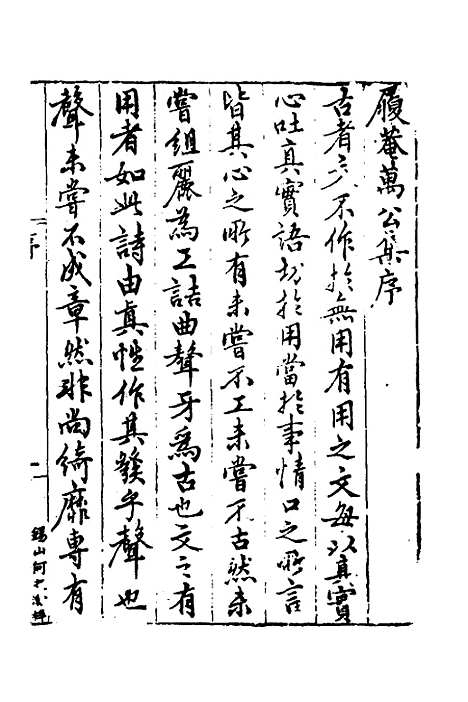 履菴萬公集序
古者之文不作於無用有用之文每以真實
心吐真實語切於用當於事情口之所言
皆其心之所有未嘗不工未嘗不古然未
嘗組麗為工詰曲聱牙為古也文之有
用者如此詩由真性作其發乎聲也
聲未嘗不成章然非尚綺靡專有
序
一
錫山何